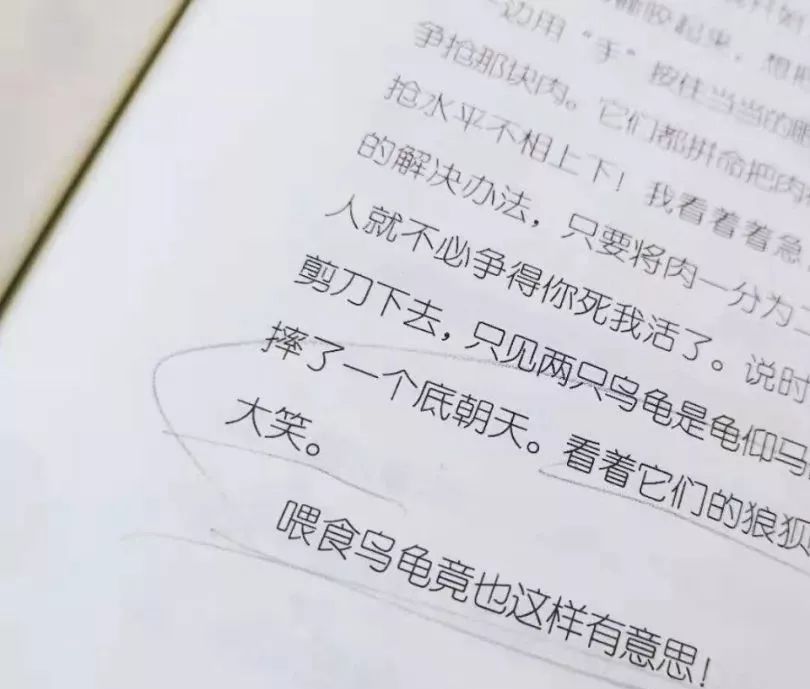 起来，想
一边用“手”按住当当的
争抢那块肉。它们都拼命把肉
抢水平不相上下！我看着着急
的解决办法，只要将肉一分为二
人就不必争得你死我活了。说时
剪刀下去，只见两只乌龟是龟仰马
摔了一个底朝天。看着它们的狼狈
大笑。
喂食乌龟竟也这样有意思！